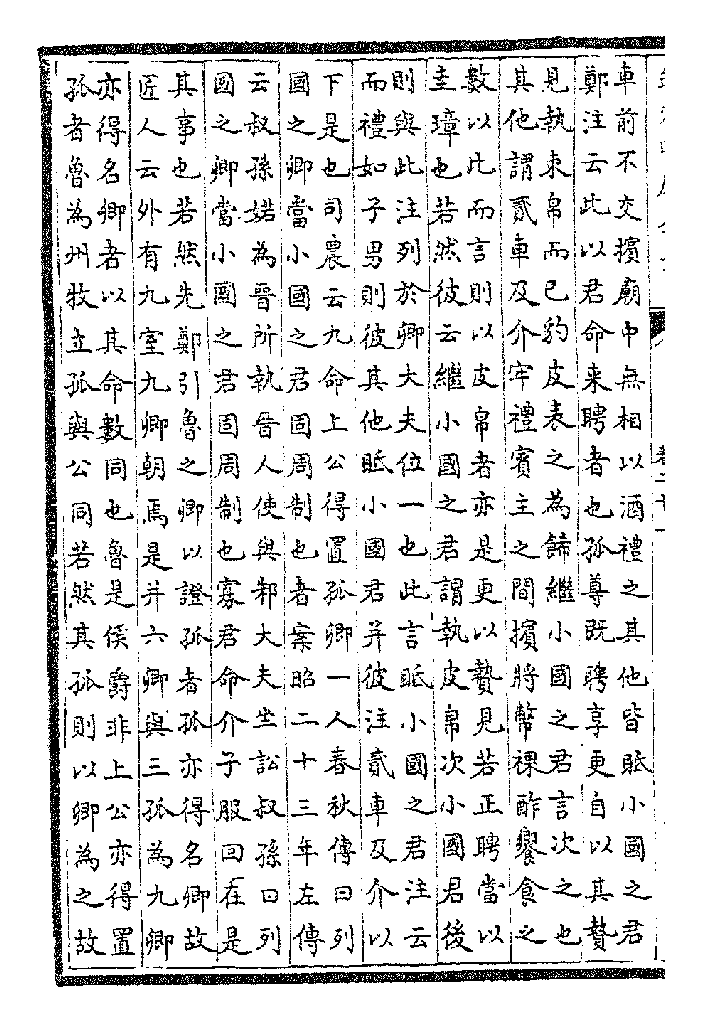 車前不交擯廟中無相以酒禮之其他皆眡小國之君
鄭注云此以君命来聘者也孤尊既聘享更自以其贄
見執束帛而已豹皮表之為飾繼小國之君言次之也
其他謂貳車及介牢禮賓主之間擯將幣祼酢饗食之
數以此而言則以皮帛者亦是更以贄見若正聘當以
圭璋也若然彼云繼小國之君謂執皮帛次小國君後
則與此注列於卿大夫位一也此言眡小國之君注云
而禮如子男則彼其他眡小國君并彼注貳車及介以
下是也司農云九命上公得置孤卿一人春秋傳曰列
國之卿當小國之君固周制也者案昭二十三年左傳
云叔孫婼為晉所執晉人使與邾大夫坐訟叔孫曰列
國之卿當小國之君固周制也寡君命介子服回在是
其事也若然先鄭引魯之卿以證孤者孤亦得名卿故
匠人云外有九室九卿朝焉是并六卿與三孤為九卿
亦得名卿者以其命數同也魯是侯爵非上公亦得置
孤者魯為州牧立孤與公同若然其孤則以卿為之故